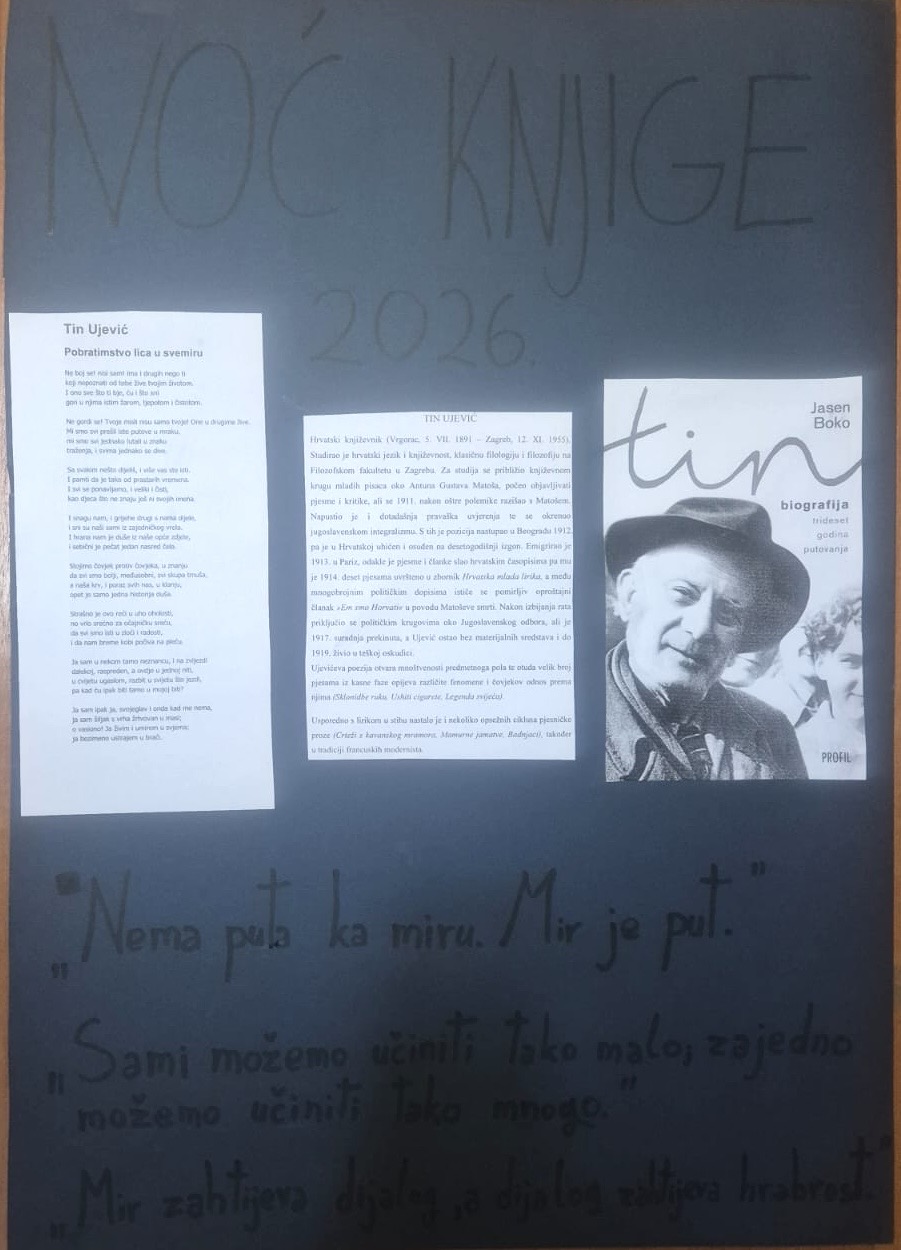 NOĆ KNJIGE
2026
Tin Ujević
Pobratimstvo lica u svemiru
Ne boj se! nisi sam! ima i drugih nego ti
koji nepoznati od tebe žive tvojim životom.
I ono sve što ti bje, ču i što sni
gori u njima istim žarom, ljepotom i čistotom.
Ne gordi se! Tvoje misli nisu samo tvoje! One u drugima žive.
Mi smo svi prešli iste putove u mraku,
mi smo svi jednako lutali u znaku
traženja, i svima jednako se dive.
Sa svakim nešto dijeliš, i više vas ste isti.
I pamti da je tako od prastarih vremena.
I svi se ponavljamo, i veliki i čisti,
kao djeca što ne znaju još ni svojih imena.
I snagu nam, i grijehe drugi s nama dijele,
i sni su naši sami iz zajedničkog vrela.
I hrana nam je duše iz naše opće zdjele,
i sebični je pečat jedan nasred čela.
Stojimo čovjek protiv čovjeka, u znanju
da svi smo bolji, međusobni, svi skupa tmuša,
a naša krv, i poraz svih nas, u klanju,
opet je samo jedna historija duša.
Strašno je ovo reći u uho oholosti,
no vrlo srećno za očajničku sreću,
da svi smo isti u zloći i radosti,
i da nam breme kobi počiva na pleću.
Ja sam u nekom tamo neznancu, i na zvijezdi
dalekoj, raspreden, a ovdje u jednoj niti,
u cvijetu ugaslom, razbit u svijetu što jezdi,
pa kad ću ipak biti tamo u mojoj biti?
Ja sam ipak ja, svojeglav i onda kad me nema,
ja sam šiljak s vrha žrtvovan u masi;
o vasiono! Ja živim i umirem u svjema;
ja bezimeno ustrajem u braći.
TIN UJEVIĆ
Hrvatski književnik (Vrgorac, 5. VII. 1891 – Zagreb, 12. XI. 1955).
Studirao je hrvatski jezik i književnost, klasičnu filologiju i filozofiju na
Filozofskom fakultetu u Zagrebu. Za studija se približio književnom
krugu mladih pisaca oko Antuna Gustava Matoša, počeo objavljivati
pjesme i kritike, ali se 1911. nakon oštre polemike razišao s Matošem.
Napustio je i dotadašnja pravaška uvjerenja te se okrenuo
jugoslavenskom integralizmu. S tih je pozicija nastupao u Beogradu 1912.
pa je u Hrvatskoj uhićen i osuđen na desetogodišnji izgon. Emigrirao je
1913. u Pariz, odakle je pjesme i članke slao hrvatskim časopisima pa mu
je 1914. deset pjesama uvršteno u zbornik Hrvatska mlada lirika, a među
mnogobrojnim političkim dopisima ističe se pomirljiv oproštajni
članak »Em smo Horvati« u povodu Matoševe smrti. Nakon izbijanja rata
priključio se političkim krugovima oko Jugoslavenskog odbora, ali je
1917. suradnja prekinuta, a Ujević ostao bez materijalnih sredstava i do
1919. živio u teškoj oskudici.
Ujevićeva poezija otvara mnoštvenosti predmetnoga pola te otuda velik broj
pjesama iz kasne faze opijeva različite fenomene i čovjekov odnos prema
njima (Sklonidbe ruku, Ushiti cigarete, Legenda svijeća).
Usporedno s lirikom u stihu nastalo je i nekoliko opsežnih ciklusa pjesničke
proze (Crteži s kavanskog mramora, Mamurne jamatve, Badnjaci), također
u tradiciji francuskih modernista.
Jasen
Boko
tin
biografija
trideset
godina
putovanja
PROFIL
„Nema puta ka miru. Mir je put."
„Sami možemo učiniti tako malo; zajedno
možemo učiniti tako mnogo."
„Mir zahtijeva dijalog, a dijalog zahtijeva hrabrost."